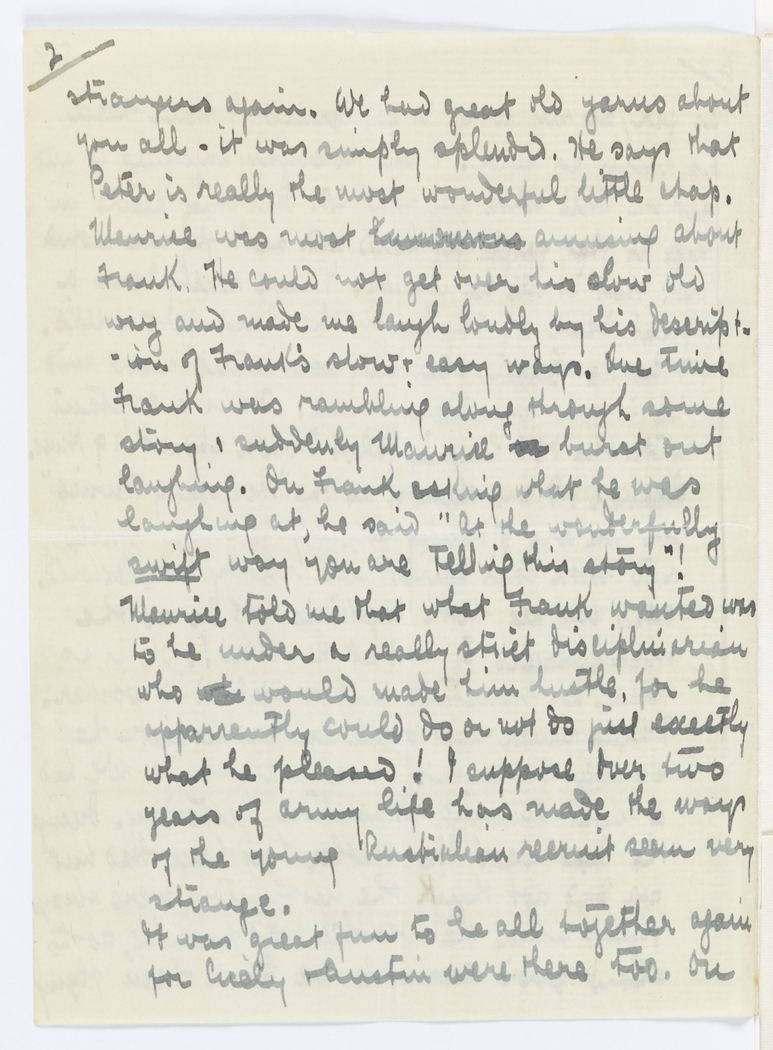 2
strangers again. We had great old yarns about
you all - it was simply splendid. He says that
Peter is really the most wonderful little chap.
Maurice was most amusing about
Frank. He could not get over his slow old
way and made me laugh loudly by his descript-
-ion of Frank's slow + easy ways. One time
Frank was rambling along through some
story, suddenly Maurice burst out
laughing. On Frank asking what he was
laughing at, he said "At the wonderfully
swift way you are telling this story"!
Maurice told me that what Frank wanted was
to be under a really strict disciplinarian
who would made him hustle, for he
apparrently could do or not do just exactly
what he pleased! I suppose over two
years of army life has made the ways
of the young Australian recruit seem very
strange.
It was great fun to be all together again
for Cicely + Austin were there too. On